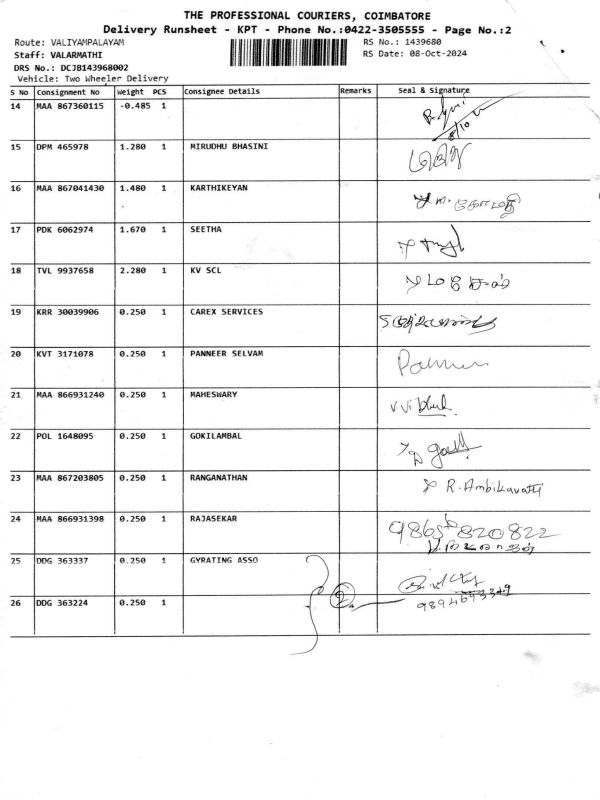 THE PROFESSIONAL COURIERS, COIMBATORE
Delivery Runsheet - KPT - Phone No.:0422-3505555 - Page No.:2
Route: VALIYAMPALAYAM RS No.: 1439680
Staff: VALARMATHI RS Date: 08-Oct-2024
DRS No.: DCJB143968002
Vehicle: Two Wheeler Delivery
S No Consignment No Weight PCS Consignee Details Remarks Seal & Signature
14 MAA 867360115 -0.485 1
15 DPM 465978 1.280 1 MIRUDHU BHASINI
16 MAA 867041430 1.480 1 KARTHIKEYAN
17 PDK 6062974 1.670 1 SEETHA
18 TVL 9937658 2.280 1 KV SCL
19 KRR 30039906 0.250 1 CAREX SERVICES
20 KVT 3171078 0.250 1 PANNEER SELVAM
21 MAA 866931240 0.250 1 MAHESWARY
22 POL 1648095 0.250 1 GOKILAMBAL
23 MAA 867203805 0.250 1 RANGANATHAN R. Ambikavathi
24 MAA 866931398 0.250 1 RAJASEKAR 9865820822
25 DDG 363337 0.250 1 GYRATING ASSO
26 DDG 363224 0.250 1 2